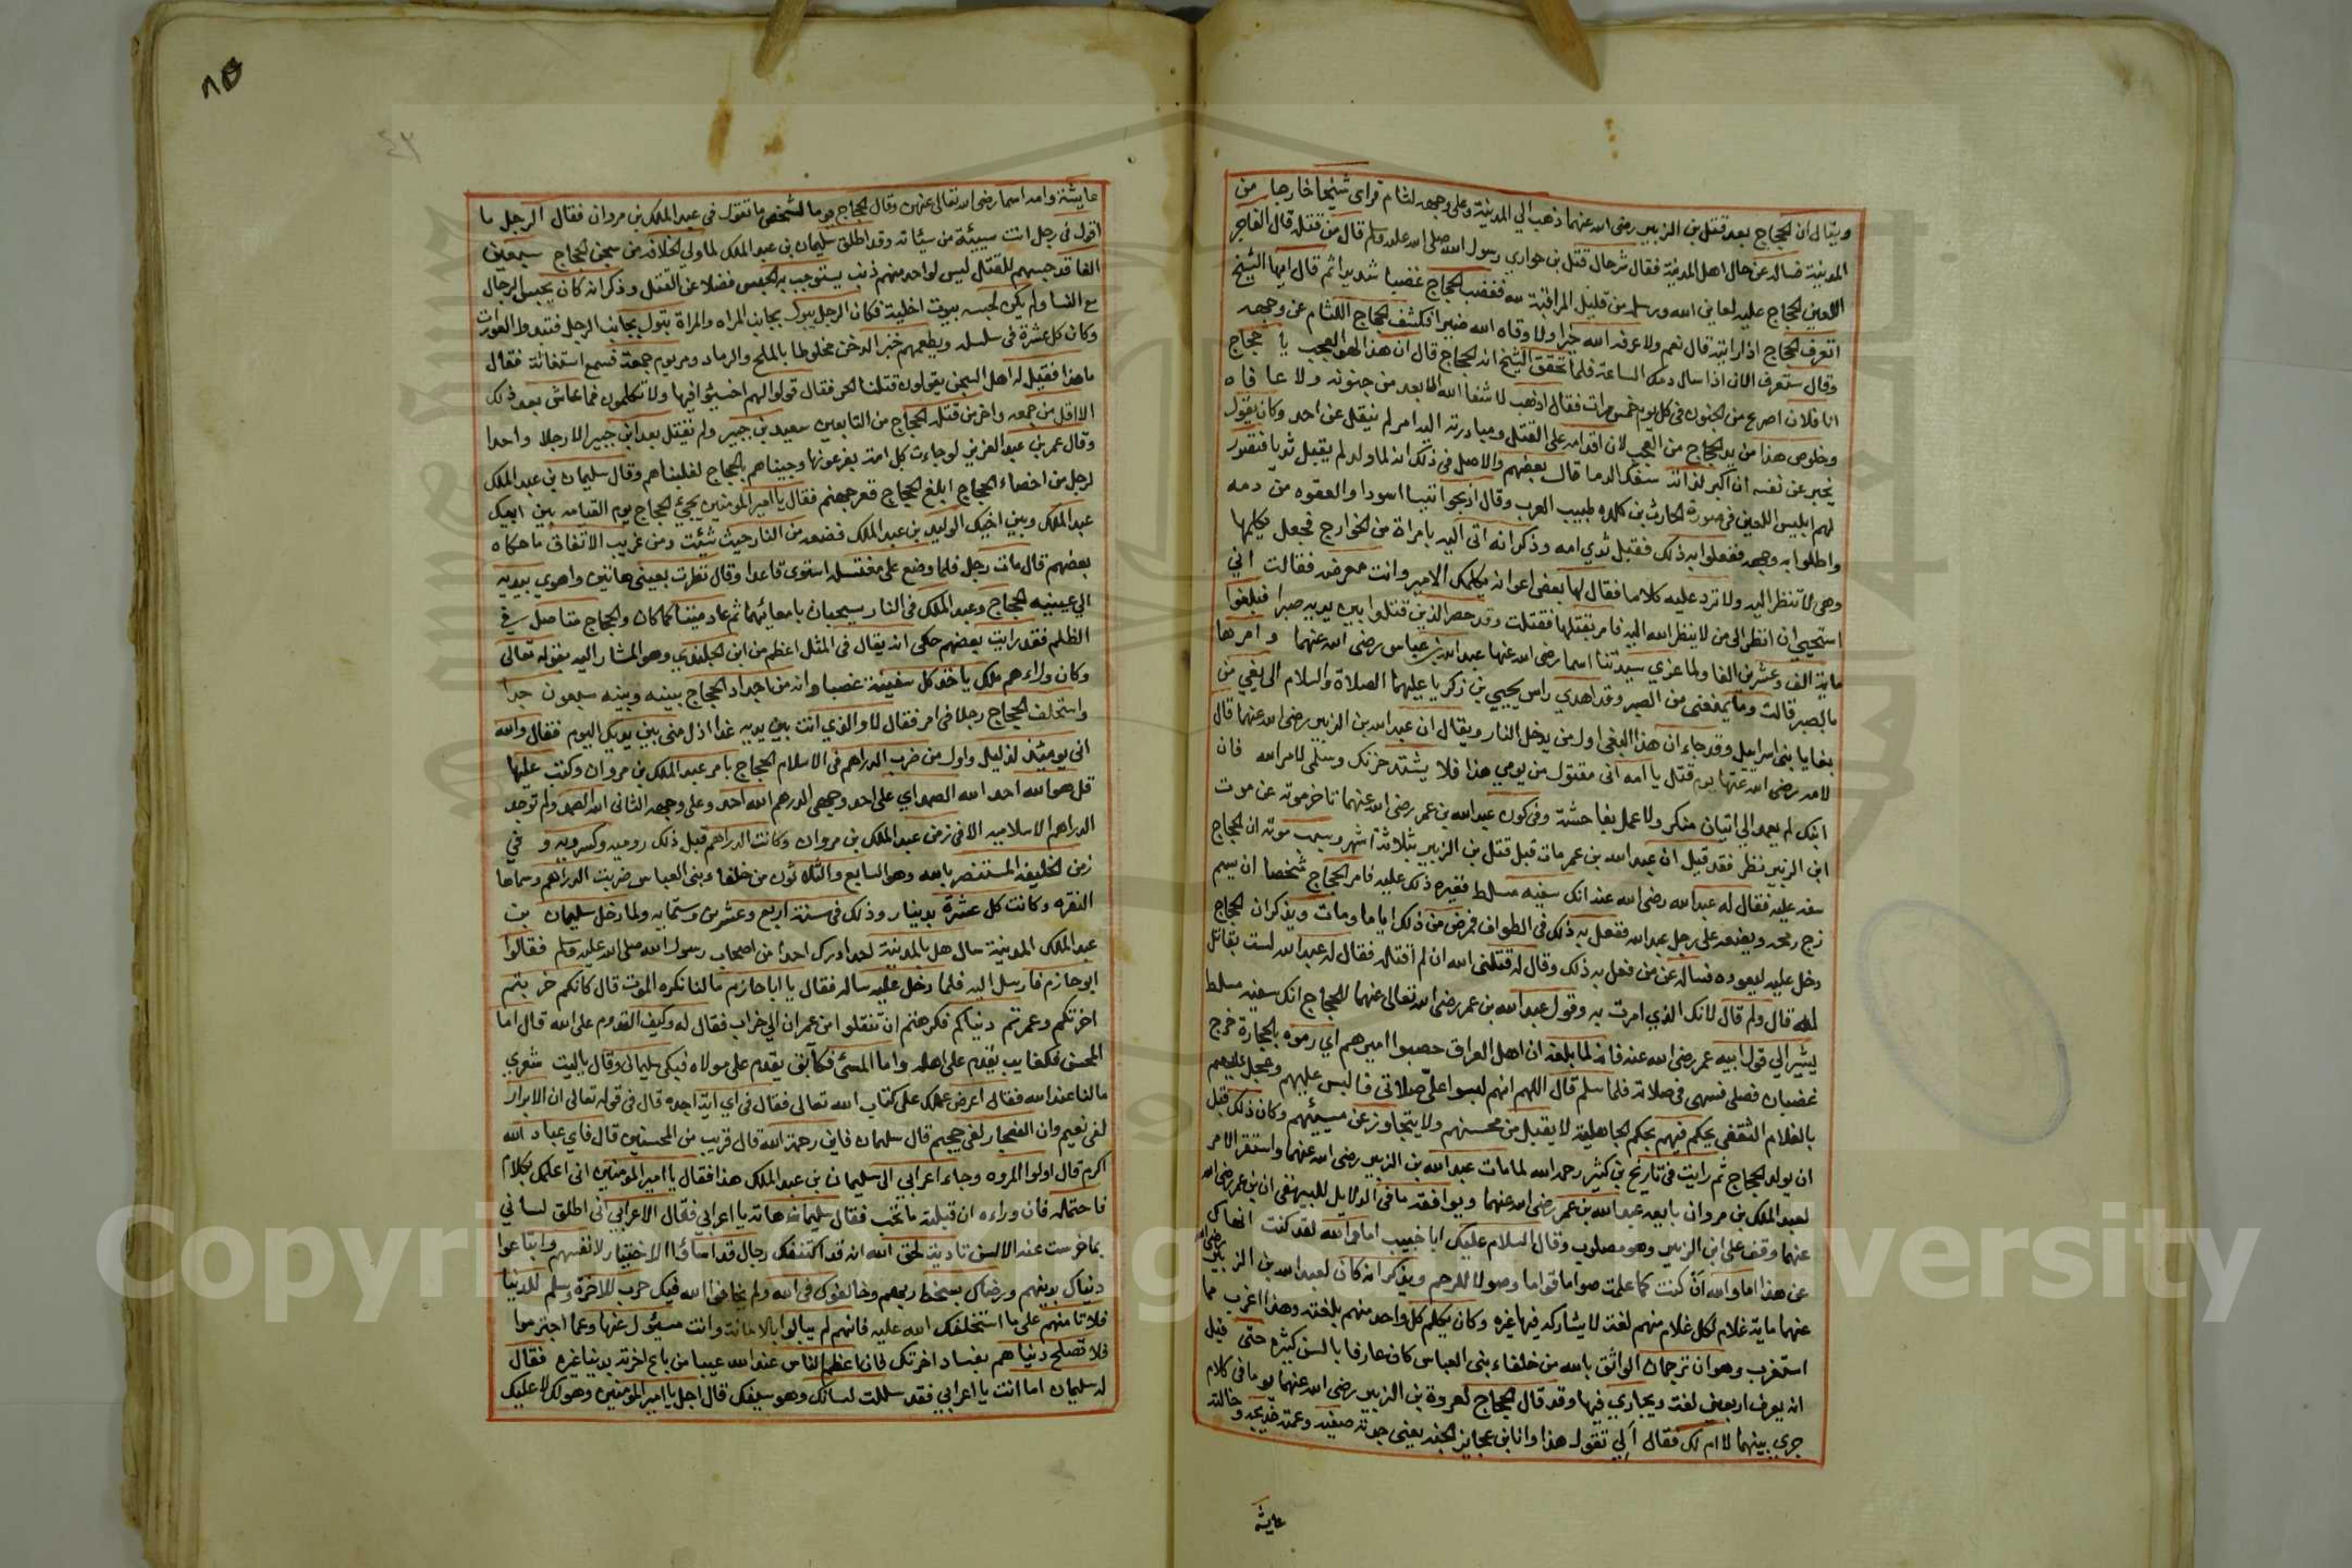 ويقال ان الحجاج بعد قتل بن الزبير رضى الله عنهما ذهب الي المدينة وعلى وجهه لثام فراى شيخا خارجا من
المدينة فساله عن حال اهل المدينة فقال شر حال قتل بن حواري رسول الله صلى الله عليه وسلم قال من قتله قال الفاجر
اللعين الحجاج عليه لعاين الله ورسله من قليل المراقبة لله فغضب الحجاج غضبا شديدا ثم قال ايها الشيخ
اتعرف الحجاج اذا رايته قال نعم ولا عرفه الله خيرا ولا وقاه الله ضيرا فكشف الحجاج اللثام عن وجهه
وقال ستعرف الان اذا سال دمك الساعة فلما تحقق الشيخ انه الحجاج قال ان هذا لهو العجب يا حجاج
انا فلان اصرع من الجنون في كل يوم خمس مرات فقال اذهب لا شفا الله الابعد من جنونه ولا عافاه
وخلوص هذا من يد الحجاج من العجب لان اقدامه على القتل ومبادرته اليه امر لم ينقل عن احد وكان يقول
يخبر عن نفسه ان اكبر لذاته سفك الدما قال بعضهم والاصل في ذلك انه لما ولد لم يقبل ثديا فتصور
لهم ابليس اللعين في صورة الحارث بن كلده طبيب العرب وقال اذبحوا تيسا اسودا والعقوه من دمه
واطلوا به وجهه ففعلوا به ذلك فقبل ثدي امه وذكر انه اتى اليه بامراة من الخوارج فجعل يكلمها
وهى لا تنظر اليه ولا ترد عليه كلاما فقال لها بعض اعوانه يكلمك الامير وانت معرضه فقالت اني
استحيي ان انظر الى من لا ينظر الله اليه فامر بقتلها فقتلت وقد حصر الذين قتلوا بين يديه صبرا فبلغوا
ماية الف وعشرين الفا ولما عزي سيدتنا اسما رضى الله عنها عبد الله بن عباس رضى الله عنهما وامرها
بالصبر قالت وما يمنعنى من الصبر وقد اهدي راس يحيي بن زكريا عليهما الصلاة والسلام الى بغي من
بغايا بنى اسراييل وقد جاء ان هذا البغى اول من يدخل النار ويقال ان عبد الله بن الزبير رضى الله عنهما قال
لامه رضى الله عنها يوم قتل يا امه انى مقتول من يومي هذا فلا يشتد حزنك وسلمى لامر الله فان
ابنك لم يعمد الي اتيان منكر ولا عمل بفاحشة وفى كون عبد الله بن عمر رضى الله عنهما تاخر موته عن موت
ابن الزبير نظر فقد قيل ان عبد الله بن عمر مات قبل قتل بن الزبير بثلاثة اشهر وسبب موته ان الحجاج
سفه عليه فقال له عبد الله رضى الله عنه انك سفيه مسلط فغيره ذلك عليه فامر الحجاج شخصا ان يسم
زج رمحه ويضعه على رجل عبد الله ففعل به ذلك في الطواف فمرض من ذلك اياما ومات ويذكر ان الحجاج
دخل عليه ليعوده فساله عن من فعل به ذلك وقال له قتلنى الله ان لم اقتله فقال له عبد الله لست بقاتل
له قال ولم قال لانك الذي امرت به وقول عبد الله بن عمر رضى الله تعالى عنهما للحجاج انك سفيه مسلط
يشير الي قول ابيه عمر رضى الله عنه فانه لما بلغه ان اهل العراق حصبوا اميرهم اي رموه بالحجارة خرج
غضبان فصلى فسهى في صلاته فلما سلم قال اللهم انهم لبسوا علىّ صلاتى فالبس عليهم وعجل عليهم
بالغلام الثقفى يحكم فيهم بحكم الجاهلية لا يقبل من محسنهم ولا يتجاوز عن مسيئهم وكان ذلك قبل
ان يولد الحجاج ثم رايت فى تاريخ بن كثير رحمه الله لما مات عبد الله بن الزبير رضى الله عنهما واستقر الامر
لعبد الملك بن مروان بايعه عبد الله بن عمر رضى الله عنهما ويوافقه ما فى الدلايل للبيهقى ان بن عمر رضى الله
عنهما وقف على ابن الزبير وهو مصلوب وقال السلام عليك ابا خبيب اما والله لقد كنت انهاك
عن هذا اما والله ان كنت كما علمت صواما قواما وصولا للرحم ويذكر انه كان لعبد الله بن الزبير رضى الله
عنهما ماية غلام لكل غلام منهم لغة لا يشاركه فيها غيره وكان يكلم كل واحد منهم بلغته وهذا اغرب مما
استغرب وهو ان ترجمان الواثق بالله من خلفاء بنى العباس كان عارفا بالسن كثيرة حتى قيل
انه يعرف اربعين لغة ويجاري فيها وقد قال الحجاج لعروة بن الزبير رضى الله عنهما يوما فى كلام
جري بينهما لا ام لك فقال الي تقول هذا وانا بن عجايز الجنه يعنى جدته صفيه وعمته خديجه وخالته
عايشه
٨٥
٤٣
عايشة وامه اسما رضى الله تعالى عنهن وقال الحجاج يوما لشخص ما تقول فى عبد الملك بن مروان فقال الرجل ما
اقول فى رجل انت سيئة من سيئاته وقد اطلق سليمان بن عبد الملك لما ولى الخلافه من سجن الحجاج سبعين
الفا قد حبسهم للقتل ليس لواحد منهم ذنب يستوجب به الحبس فضلا عن القتل وذكر انه كان يحبس الرجال
مع النسا ولم يكن لحبسه بيوت اخلية فكان الرجل يبول بجانب المراه والمراة تبول بجانب الرجل فتبدوا العورات
وكان كل عشرة فى سلسله ويطعمهم خبز الدخن مخلوطا بالملح والرماد ومر يوم جمعة فسمع استغاثة فقال
ما هذا فقيل له اهل السجن يقولون قتلنا الحر فقال قولوا لهم اخسئوا فيها ولا تكلمون فما عاش بعد ذلك
الا اقل من جمعه واخر من قتله الحجاج من التابعين سعيد بن جبير ولم يقتل بعد ابن جبير الا رجلا واحدا
وقال عمر بن عبد العزيز لو جاءت كل امة بفرعونها وجيناهم بالحجاج لغلبناهم وقال سليمان بن عبد الملك
لرجل من اخصاء الحجاج ابلغ الحجاج قعر جهنم فقال يا امير المومنين يجئ الحجاج يوم القيامه بين ابيك
عبد الملك وبين اخيك الوليد بن عبد الملك فضعه من النار حيث شئت ومن غريب الاتفاق ما حكاه
بعضهم قال مات رجل فلما وضع على مغتسله استوى قاعدا وقال نظرت بعينى هاتين واهوي بيديه
الي عينيه الحجاج وعبد الملك فى النار يسحبان بامعائهما ثم عاد ميتا كما كان والحجاج متاصل في
الظلم فقد رايت بعضهم حكى انه يقال فى المثل اعظم من ابن الجلندي وهو المشار اليه بقوله تعالى
وكان وراءهم ملك ياخذ كل سفينة غصبا وانه من اجداد الحجاج بينه وبينه سبعون جدا
واستحلف الحجاج رجلا فى امر فقال لا والذي انت بين يديه غدا اذل منى بين يديك اليوم فقال والله
انى يوميئذ لذليل واول من ضرب الدراهم فى الاسلام الحجاج بامر عبد الملك بن مروان وكتب عليها
قل هو الله احد الله الصمد اي على احد وجهى الدرهم الله احد وعلى وجهه الثانى الله الصمد ولم توجد
الدراهم الاسلاميه الا فى زمن عبد الملك بن مروان وكانت الدراهم قبل ذلك روميه وكسرويه و في
زمن الخليفه المستنصر بالله وهو السابع والثلاثون من خلفا وبنى العباس ضربت الدراهم وسماها
النقره وكانت كل عشرة بدينار وذلك فى سنة اربع وعشرين وستمايه ولما دخل سليمان بن
عبد الملك المدينة سال هل بالمدينة احد ادرك احدا من اصحاب رسول الله صلى الله عليه وسلم فقالوا
ابو حازم فارسل اليه فلما دخل عليه ساله فقال يا ابا حازم ما لنا نكره الموت قال لانكم خربتم
اخرتكم وعمرتم دنياكم فكرهتم ان تنقلوا من عمران الي خراب فقال له وكيف القدوم على الله قال اما
المحسن فكغايب يقدم على اهله واما المسئ فكآبق يقدم على مولاه فبكى سليمان وقال ياليت شعري
ما لنا عند الله فقال اعرض عملك على كتاب الله تعالى فقال فى اي اية اجده قال فى قوله تعالى ان الابرار
لفى نعيم وان الفجار لفى جحيم قال سليمان فاين رحمة الله قال قريب من المحسنين قال فاي عباد الله
اكرم قال اولوا المروه وجاء اعرابي الى سليمان بن عبد الملك هذا فقال يا امير المومنين انى اعلمك بكلام
فاحتمله فان وراءه ان قبلته ما تحب فقال سليمان هاته يا اعرابي فقال الاعرابي انى اطلق لساني
بما خرست عنه الالسن تادية لحق الله انه قد اكتنفك رجال قد اساؤا الاختيار لانفسهم وابتاعوا
دنياك بدينهم ورضاك بسخط ربهم وخالفوك فى الله ولم يخافوا الله فيك حرب للاخرة وسلم للدنيا
فلا تامنهم على ما استخلفك الله عليه فانهم لم يبالوا بالامانة وانت مسئول عنها وعما اجترموا
فلا تصلح دنياهم بفساد اخرتك فان اعظم الناس عند الله عيبا من باع اخرته بدنيا غيره فقال
له سليمان اما انت يا اعرابي فقد سللت لسانك وهو سيفك قال اجل يا امير المومنين وهو لك لا عليك
Copyright © King Saud University